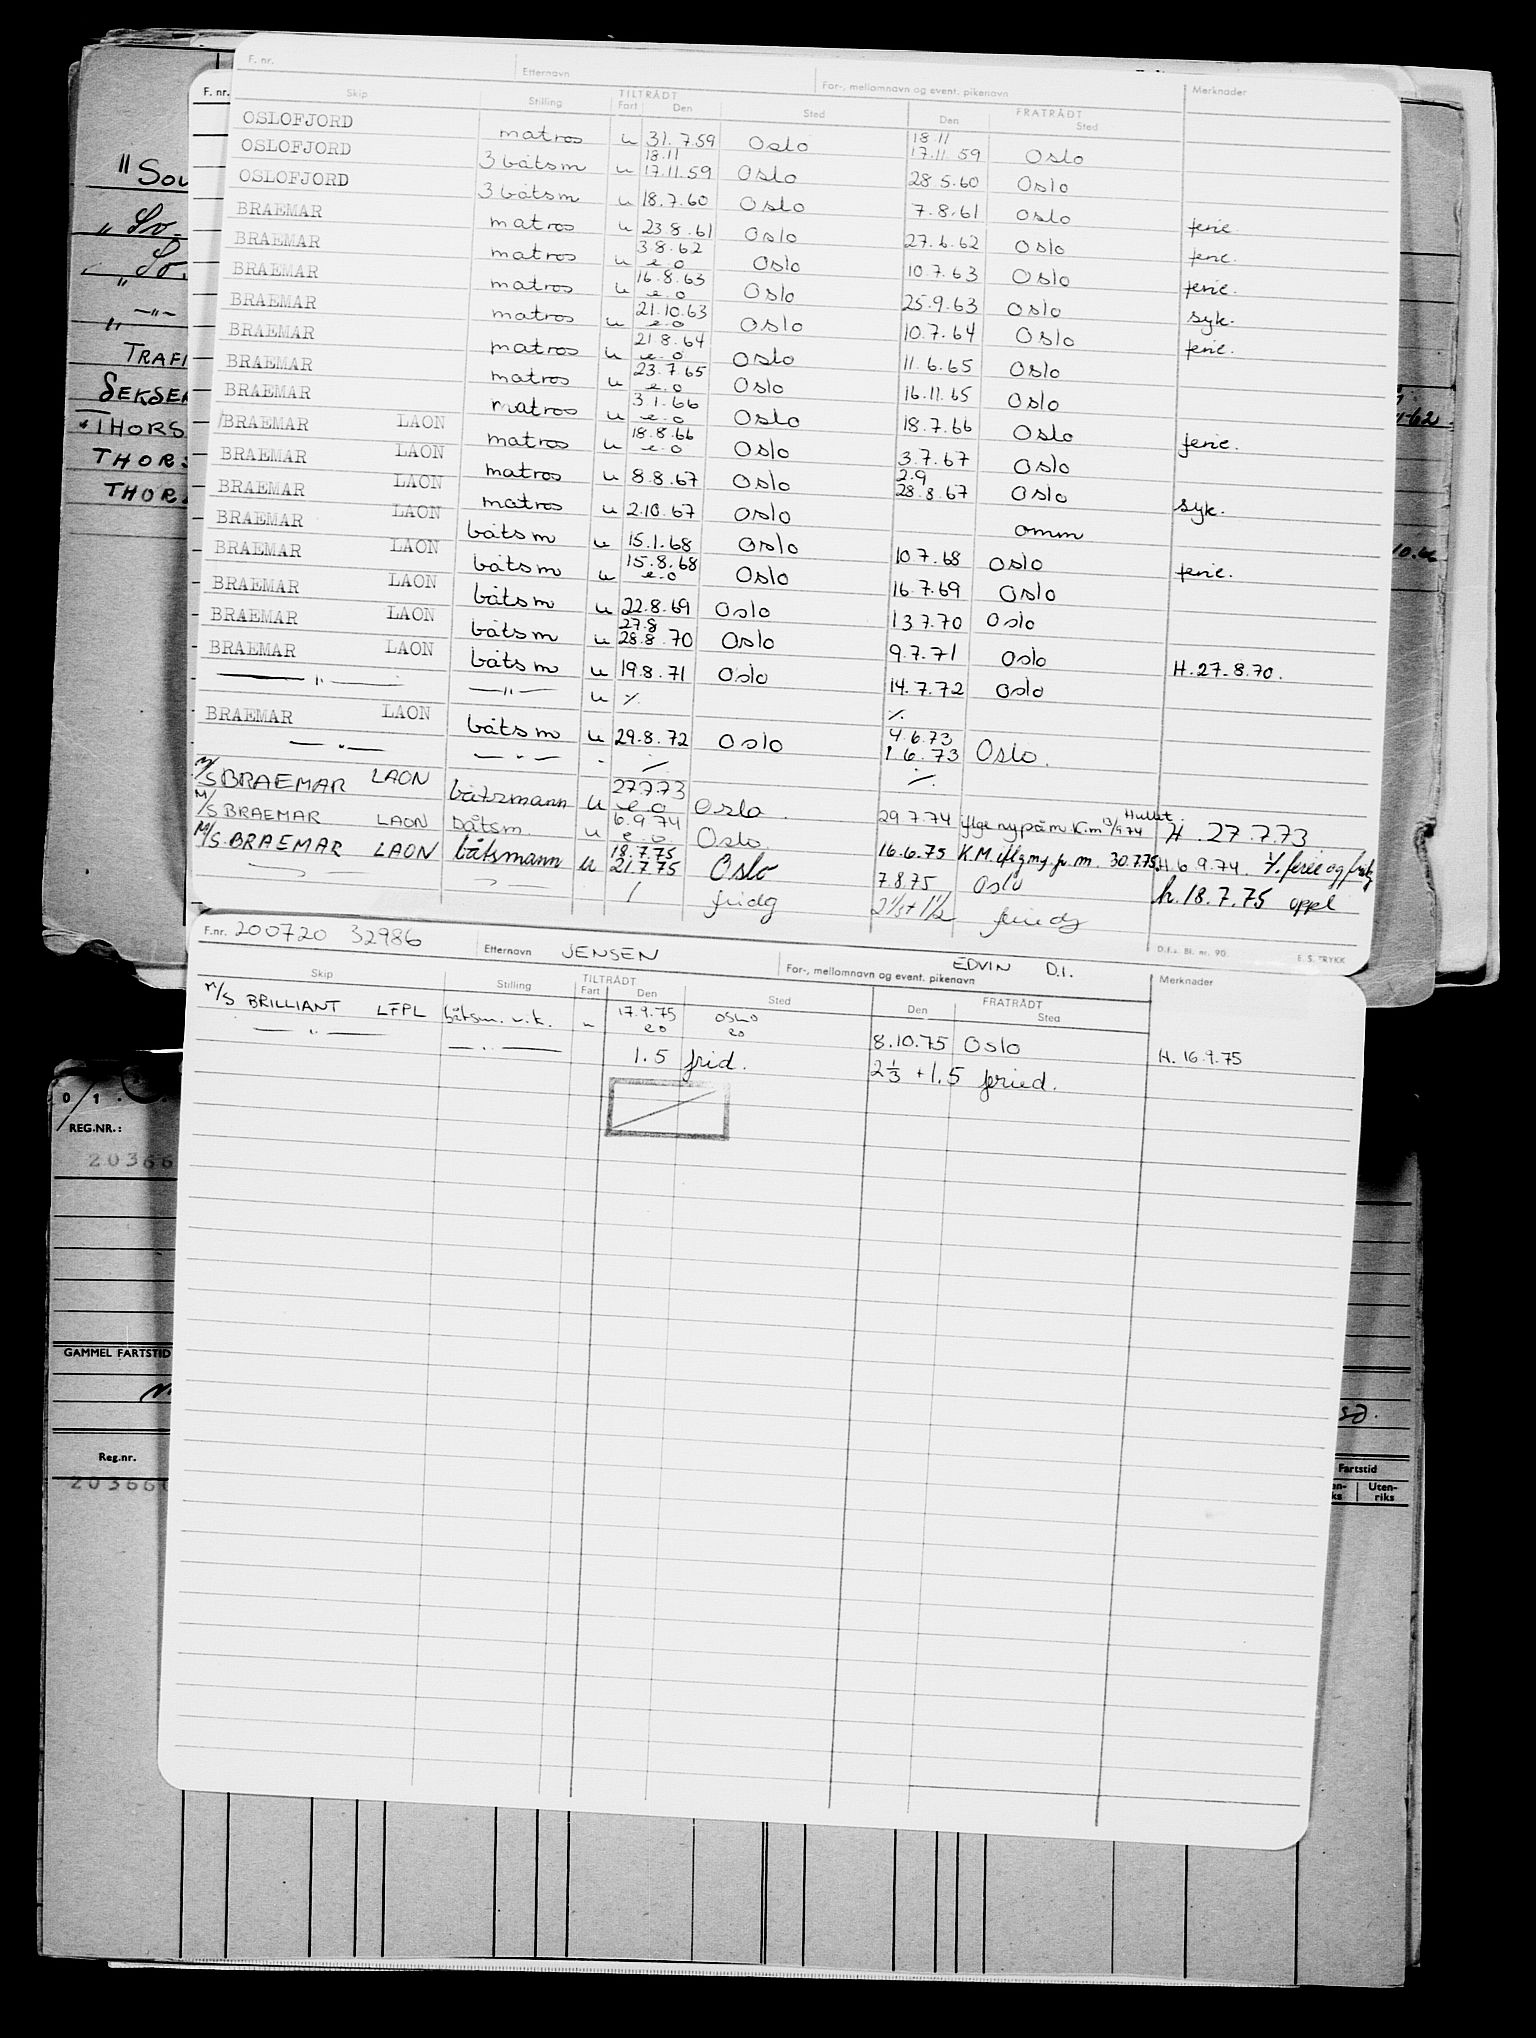 F. nr. Etternavn For-, mellomnavn og event. pikenavn Merknader
Skip Stilling TILTRÅDT Fart Den Sted FRATRÅDT Den Sted
OSLOFJORD matros u 31.7.59 Oslo 18.11 17.11.59 Oslo
OSLOFJORD 3 båtsm u 18.11 17.11.59 Oslo 28.5.60 Oslo
OSLOFJORD 3 båtsm u 18.7.60 Oslo 7.8.61 Oslo ferie.
BRAEMAR matros u 23.8.61 Oslo 27.6.62 Oslo ferie.
BRAEMAR matros u 3.8.62 e.o Oslo 10.7.63 Oslo ferie.
BRAEMAR matros u 16.8.63 e.o Oslo 25.9.63 Oslo syk.
BRAEMAR matros u 21.10.63 e.o Oslo 10.7.64 Oslo ferie.
BRAEMAR matros u 21.8.64 e.o Oslo 11.6.65 Oslo
BRAEMAR matros u 23.7.65 e.o Oslo 16.11.65 Oslo
BRAEMAR matros u 3.1.66 e.o Oslo 18.7.66 Oslo ferie.
BRAEMAR LAON matros u 18.8.66 e.o Oslo 3.7.67 Oslo
BRAEMAR LAON matros u 8.8.67 Oslo 2.9 28.8.67 Oslo syk.
BRAEMAR LAON matros u 2.10.67 Oslo omm
BRAEMAR LAON båtsm u 15.1.68 Oslo 10.7.68 Oslo ferie.
BRAEMAR LAON båtsm u 15.8.68 e.o Oslo 16.7.69 Oslo
BRAEMAR LAON båtsm u 22.8.69 Oslo 13.7.70 Oslo
BRAEMAR LAON båtsm u 27.8 28.8.70 Oslo 9.7.71 Oslo H.27.8.70.
BRAEMAR LAON båtsm u 19.8.71 Oslo 14.7.72 Oslo
— " — — " — u ٪ ٪
BRAEMAR LAON båtsm u 29.8.72 Oslo 4.6.73 1.6.73 Oslo.
— " — — " — ٪ ٪
M/S BRAEMAR LAON båtsmann u 27.7.73 e.o Oslo. 29.7.74 iflge ny påm K.m 13/9 74 Hullet. H. 27.7.73
M/S BRAEMAR LAON båtsm. u 6.9.74 e.o Oslo. 16.6.75 K.M. iflg ny. p. m. 30.7.75. H. 6.9.74. ferie og
M/S. BRAEMAR LAON båtsmann u 18.7.75 21.7.75 Oslo 7.8.75 Oslo h. 18.7.75 oppl
1 fridg 2 1/3 + 1 1/2 feriedg
D.f.s. Bl. nr. 90. E. S. TRYKK
F.nr. 200720 32986 Etternavn JENSEN For-, mellomnavn og event. pikenavn EDVIN D.I.
Skip Stilling TILTRÅDT Fart Den Sted FRATRÅDT Den Sted Merknader
M/S BRILLIANT LFPL båtsm. v.k. u 17.9.75 eo OSLO eo 8.10.75 Oslo H. 16.9.75
— " — — " — 1.5 frid. 2 1/3 + 1.5 feried.
F. nr.
" Sou
" So.
" So.
" — " —
TRAFI
SEKSE
THORS
THOR
THOR
REG.NR.:
20366
GAMMEL FARTSTID
Reg.nr.
20366
Fartstid
Uten-
riks